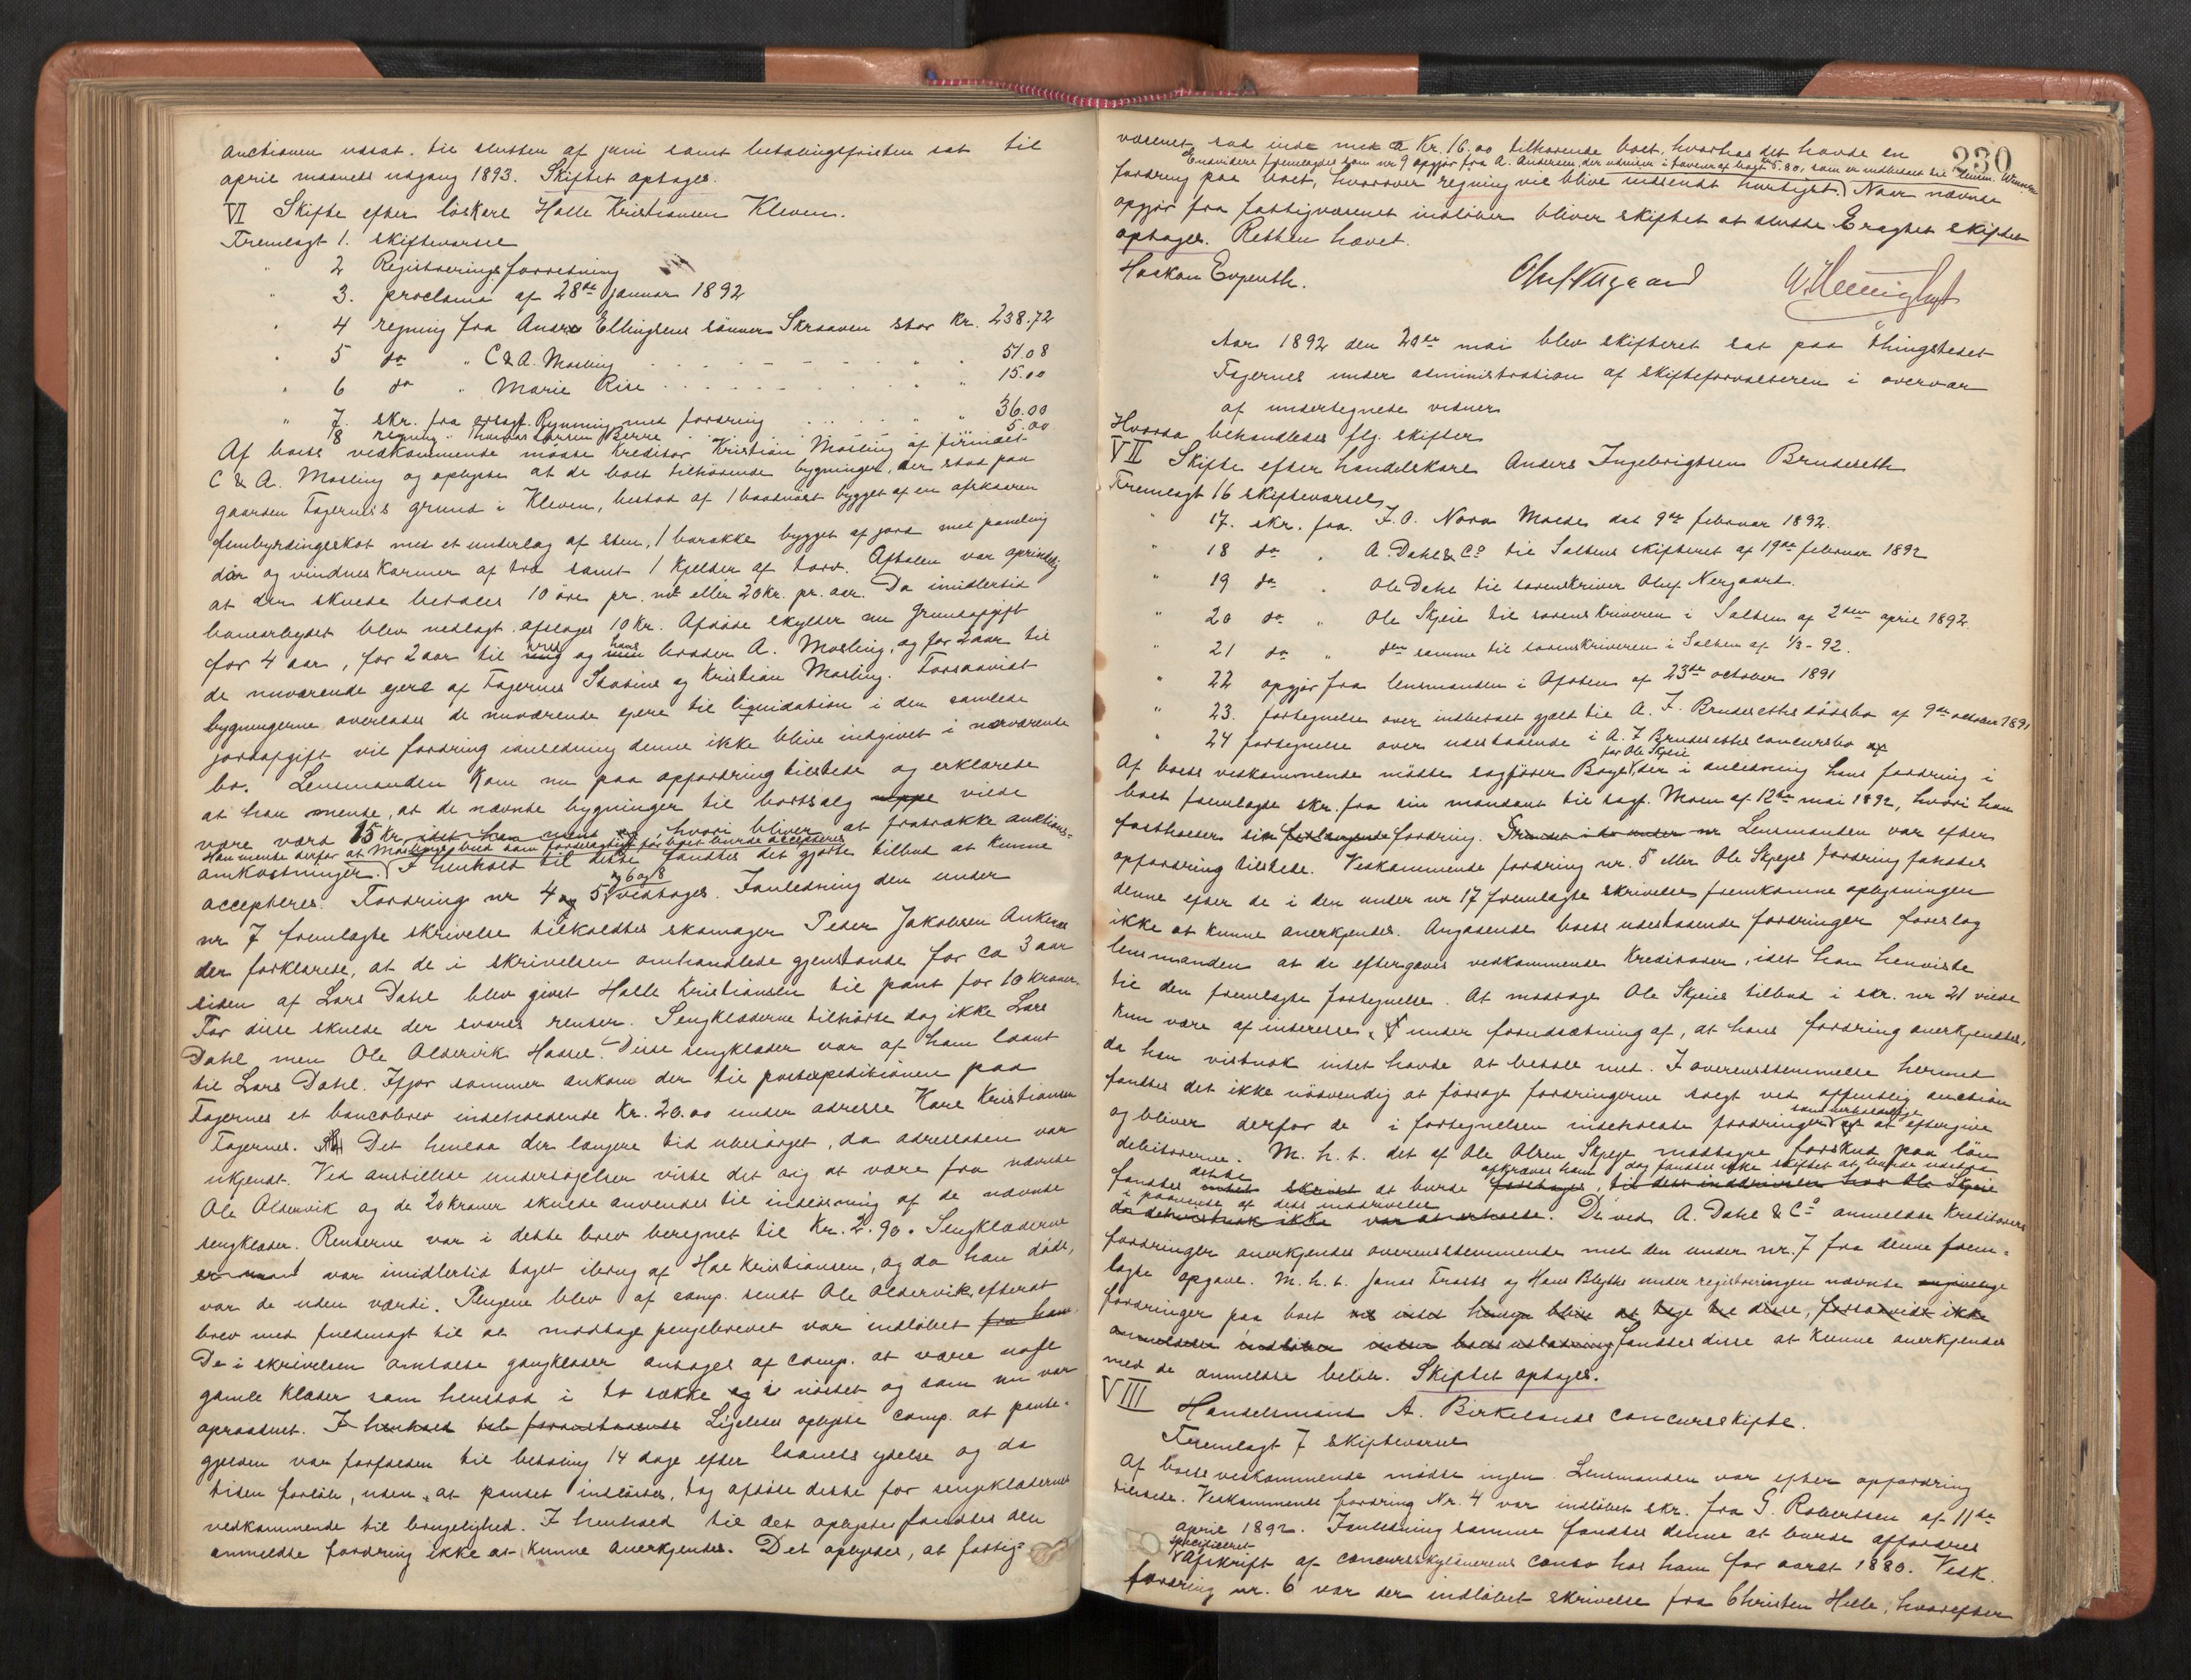 auctionen udsat til slutten af juni samt betalingsfristen sat til
april maaneds udgang 1893. Skiftet optages.
VI Skifte efter løskarl Halle Kristiansen Kleven.
Fremlagt 1. skiftevarsel
" 2 Registreringsforretning
" 3. proclama af 28de januar 1892
" 4 regning fra Ellingsens sønner Skraaven stor Kr. 238.72
" 5 do " C & A. Mosling " " 51.08
" 6 do " Marie Rise " " 15.00
" 7. skr. fra Rynning med fordring " " 36.00
8 regning " Larsen Berre 5.00
Af boets vedkommende mødte kreditor Kristian Mosling af firmaet
C & A. Mosling og oplyste at de boet tilhørende bygninger, der stod paa
gaarden Fagernes grund i Kleven, bestod af 1 baadnøst bygget af en afskaaren
fembyrdingsskot med et underlag af sten, 1 barakke bygget af jord med paneling
dør og vindueskarmer af træ samt 1 kjelder af torv. Aftalen var oprindelig
at der skulde betales 10 øre pr. md eller 20 kr. pr. aar. Da imidlertid
banearbeidet blev nedlagt afsloges 10 kr. Afdøde skylder nu grundafgift
for 4 aar, for 2 aar til mig og min hans broder A. Mosling, og for 2 aar til
de nuværende eiere af Fagernes Stabine og Kristian Mosling. Forsaavidt
bygningerne overlades de nuværende eiere til liquidation i den samlede
jordafgift vil fordring i anledning denne ikke blive indgivet i nærværende
bo. Lensmanden kom nu paa opfordring tilstede og erklærede
at han mente, at de nævnte bygninger til bortsalg neppe vilde
være værd 15 kr. idet han mente , hvori bliver at fratrække auktions-
Han mente derfor at Moslings bud som fordelagtigt for boet burde accepteres
omkostninger. I henhold til dette fandtes det gjorte tilbud at kunne
accepteres. Fordring nr 4 og 5 og 6 og 8 vedtoges. I anledning den under
nr 7 fremlagte skrivelse tilkaldtes skomager Peder Jakobsen Ankenes
der forklarede, at de i skrivelsen omhandlede gjenstande for ca 3 aar
siden af Lars Dahl blev givet Halle Kristiansen til pant for 10 kroner.
For disse skulde der svares renter. Sengklæderne tilhørte dog ikke Lars
Dahl men Ole Oldervik Hassel. Disse sengklæder var af ham laant
til Lars Dahl. Ifjor sommer ankom der til postexpeditionen paa
Fagernes et bancobrev indeholdende Kr. 20.00 under adresse Hare Kristiansen
Fagernes. Det henlaa der længere tid ubesørget, da adressaten var
ukjendt. Ved anstillede undersøgelser viste det sig at være fra nævnte
Ole Oldervik og de 20 kroner skulde anvendes til indløsning af de nævnte
sengklæder. Renterne var i dette brev beregnet til Kr. 2.90. Sengklæderne
var imidlertid taget ibrug af Hal Kristiansen, og da han døde,
var de uden værdi. Pengene blev af comp. sendt Ole Oldervik, efterat
brev med fuldmagt til at modtage pengebrevet var indløbet fra ham.
De i skrivelsen omtalte gangklæder antages af comp. at være nogle
gamle klæder som henstod i to sække og i nøstet og som nu var
opraadnet. I henhold til foranstaaende Ligeledes oplyste comp. at pante-
gjælden var forfalden til betaling 14 dage efter laanets ydelse og da
tiden forløb, uden at pantet indløstes, tog afdøde dette for sengklædernes
vedkommende til brugelighed. I henhold til det oplyste fandtes den
anmeldte fordring ikke at kunne anerkjendes. Det oplystes, at fattig-
230
væsenet sad inde med Kr. 16.00 tilhørende boet, hvorhos det havde en
Endvidere fremlagdes som nr 9 opgjør fra A. Andersen, der udviser i favør af boet kr 5.80, som er indbetalt til
fordring paa boet, hvorover regning vil blive indsendt hurtigst. Naar nævnte
opgjør fra fattigvæsenet indløber bliver skiftet at slutte. Eragtet skiftet
optages. Retten hævet.
Haakon Evjenth. Oluf Nergaard
Aar 1892 den 20de mai blev skifteret sat paa thingstedet
Fagernes under administration af skifteforvalteren i overvær
af undertegnede vidner
Hvorda behandledes flg. skifter
VII Skifte efter handelskarl Anders Ingebrigtsen Brudeseth
Fremlagt 16 skiftevarsel
" 17. skr. fra. J. O. Nova Moldes dat 9de februar 1892.
" 18 do " A. Dahl & Co til Saltens skifteret af 19de februar 1892
" 19 do " Ole Dahl til sorenskriver Oluf Nergaard.
" 20 do " Ole Skjeie til sorenskriveren i Salten af 2den april 1892.
" 21 do " den samme til sorenskriveren i Salten af 1/3-92.
" 22 opgjør fra lensmanden i Ofoten af 23de october 1891
" 23. fortegnelse over indbetalt gjæld til A. J. Brudeseths dødsbo af 9de october 1891
" 24 fortegnelse over udestaaende i A. J. Brudeseths concursbo af
Af boets vedkommende mødte sagfører Bøge for Ole Skjeie der i anledning hans fordring i
boet fremlagde skr. fra sin mandant til sagf. Moen af 12te mai 1892, hvori han
fastholder sin fordring. Lensmanden var efter
opfordring tilstede. Vedkommende fordring nr. 5 eller Ole Skjeies fordring fandtes
denne efter de i den under nr 17 fremlagte skrivelse fremkomne oplysninger
ikke at kunne anerkjendes. Angaaende boets udestaaende fordringer foreslog
lensmanden at de eftergaves vedkommende kreditorer, idet han henviste
til den fremlagte fortegnelse. At modtage Ole Skjeies tilbud i skr. nr 21 vilde
kun være af interesse, under forudsætning af, at hans fordring anerkjendtes,
da han vistnok intet havde at betale med. I overensstemmelse hermed
fandtes det ikke nødvendig at forsøge fordringerne solgt ved offentlig auction
og bliver derfor de i fortegnelsen indeholdte fordringer som uerholdelige at eftergive
debitorerne. M. h. t. det af Ole Olsen Skjeie modtagne forskud paa løn
fandtes dette at burde afkræves ham, dog fandtes ikke skiftet at burde udestaa
i paavente af dets inddrivelse. De ved A. Dahl & Co anmeldte kreditorers
fordringer anerkjendes overensstemmende med den under nr. 7 fra denne frem-
lagte opgave. M. h. t. Jonas Frosts og Hans Blyths under registreringen nævnte
fordringer paa boet fandtes disse at kunne anerkjendes
med de anmeldte beløb. Skiftet optages.
VIII Handelsmand A. Birkelands concursskifte.
Fremlagt 7 skiftevarsel
Af boets vedkommende mødte ingen. Lensmanden var efter opfordring
tilstede. Vedkommende fordring Nr. 4 var indløbet skr. fra G. Robertsen af 11te
april 1892. I anledning samme fandtes denne at burde affordres
specificeret
Afskrift af concursskyldnerens conto hos ham for aaret 1880. Vedk.
fordring nr. 6 var der indløbet skrivelse fra Christen Helle, hvorefter